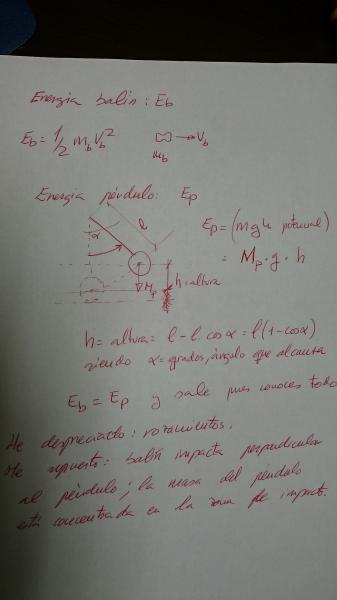 Energía balín: Eb
Eb = 1/2 mb Vb² mb → Vb
Energía péndulo: Ep
l
α
Ep = (mgh potencial)
= Mp · g · h
h = altura
Mp
h = altura = l - l. cos α = l (1 - cos α)
siendo α = grados, ángulo que alcanza
Eb = Ep y sale pues conoces todo
He despreciado: rozamientos.
He supuesto: balín impacta perpendicular
al péndulo; la masa del péndulo
está concentrada en la zona de impact.